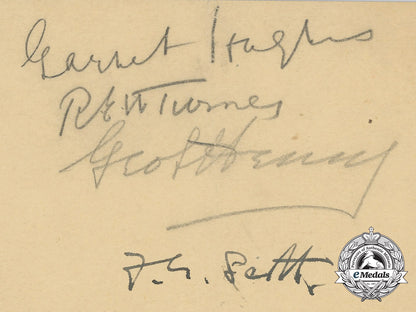 Garnet Hughes
R.E.W. Turner
Geo S Henry
F. G. Scott.
eMedals